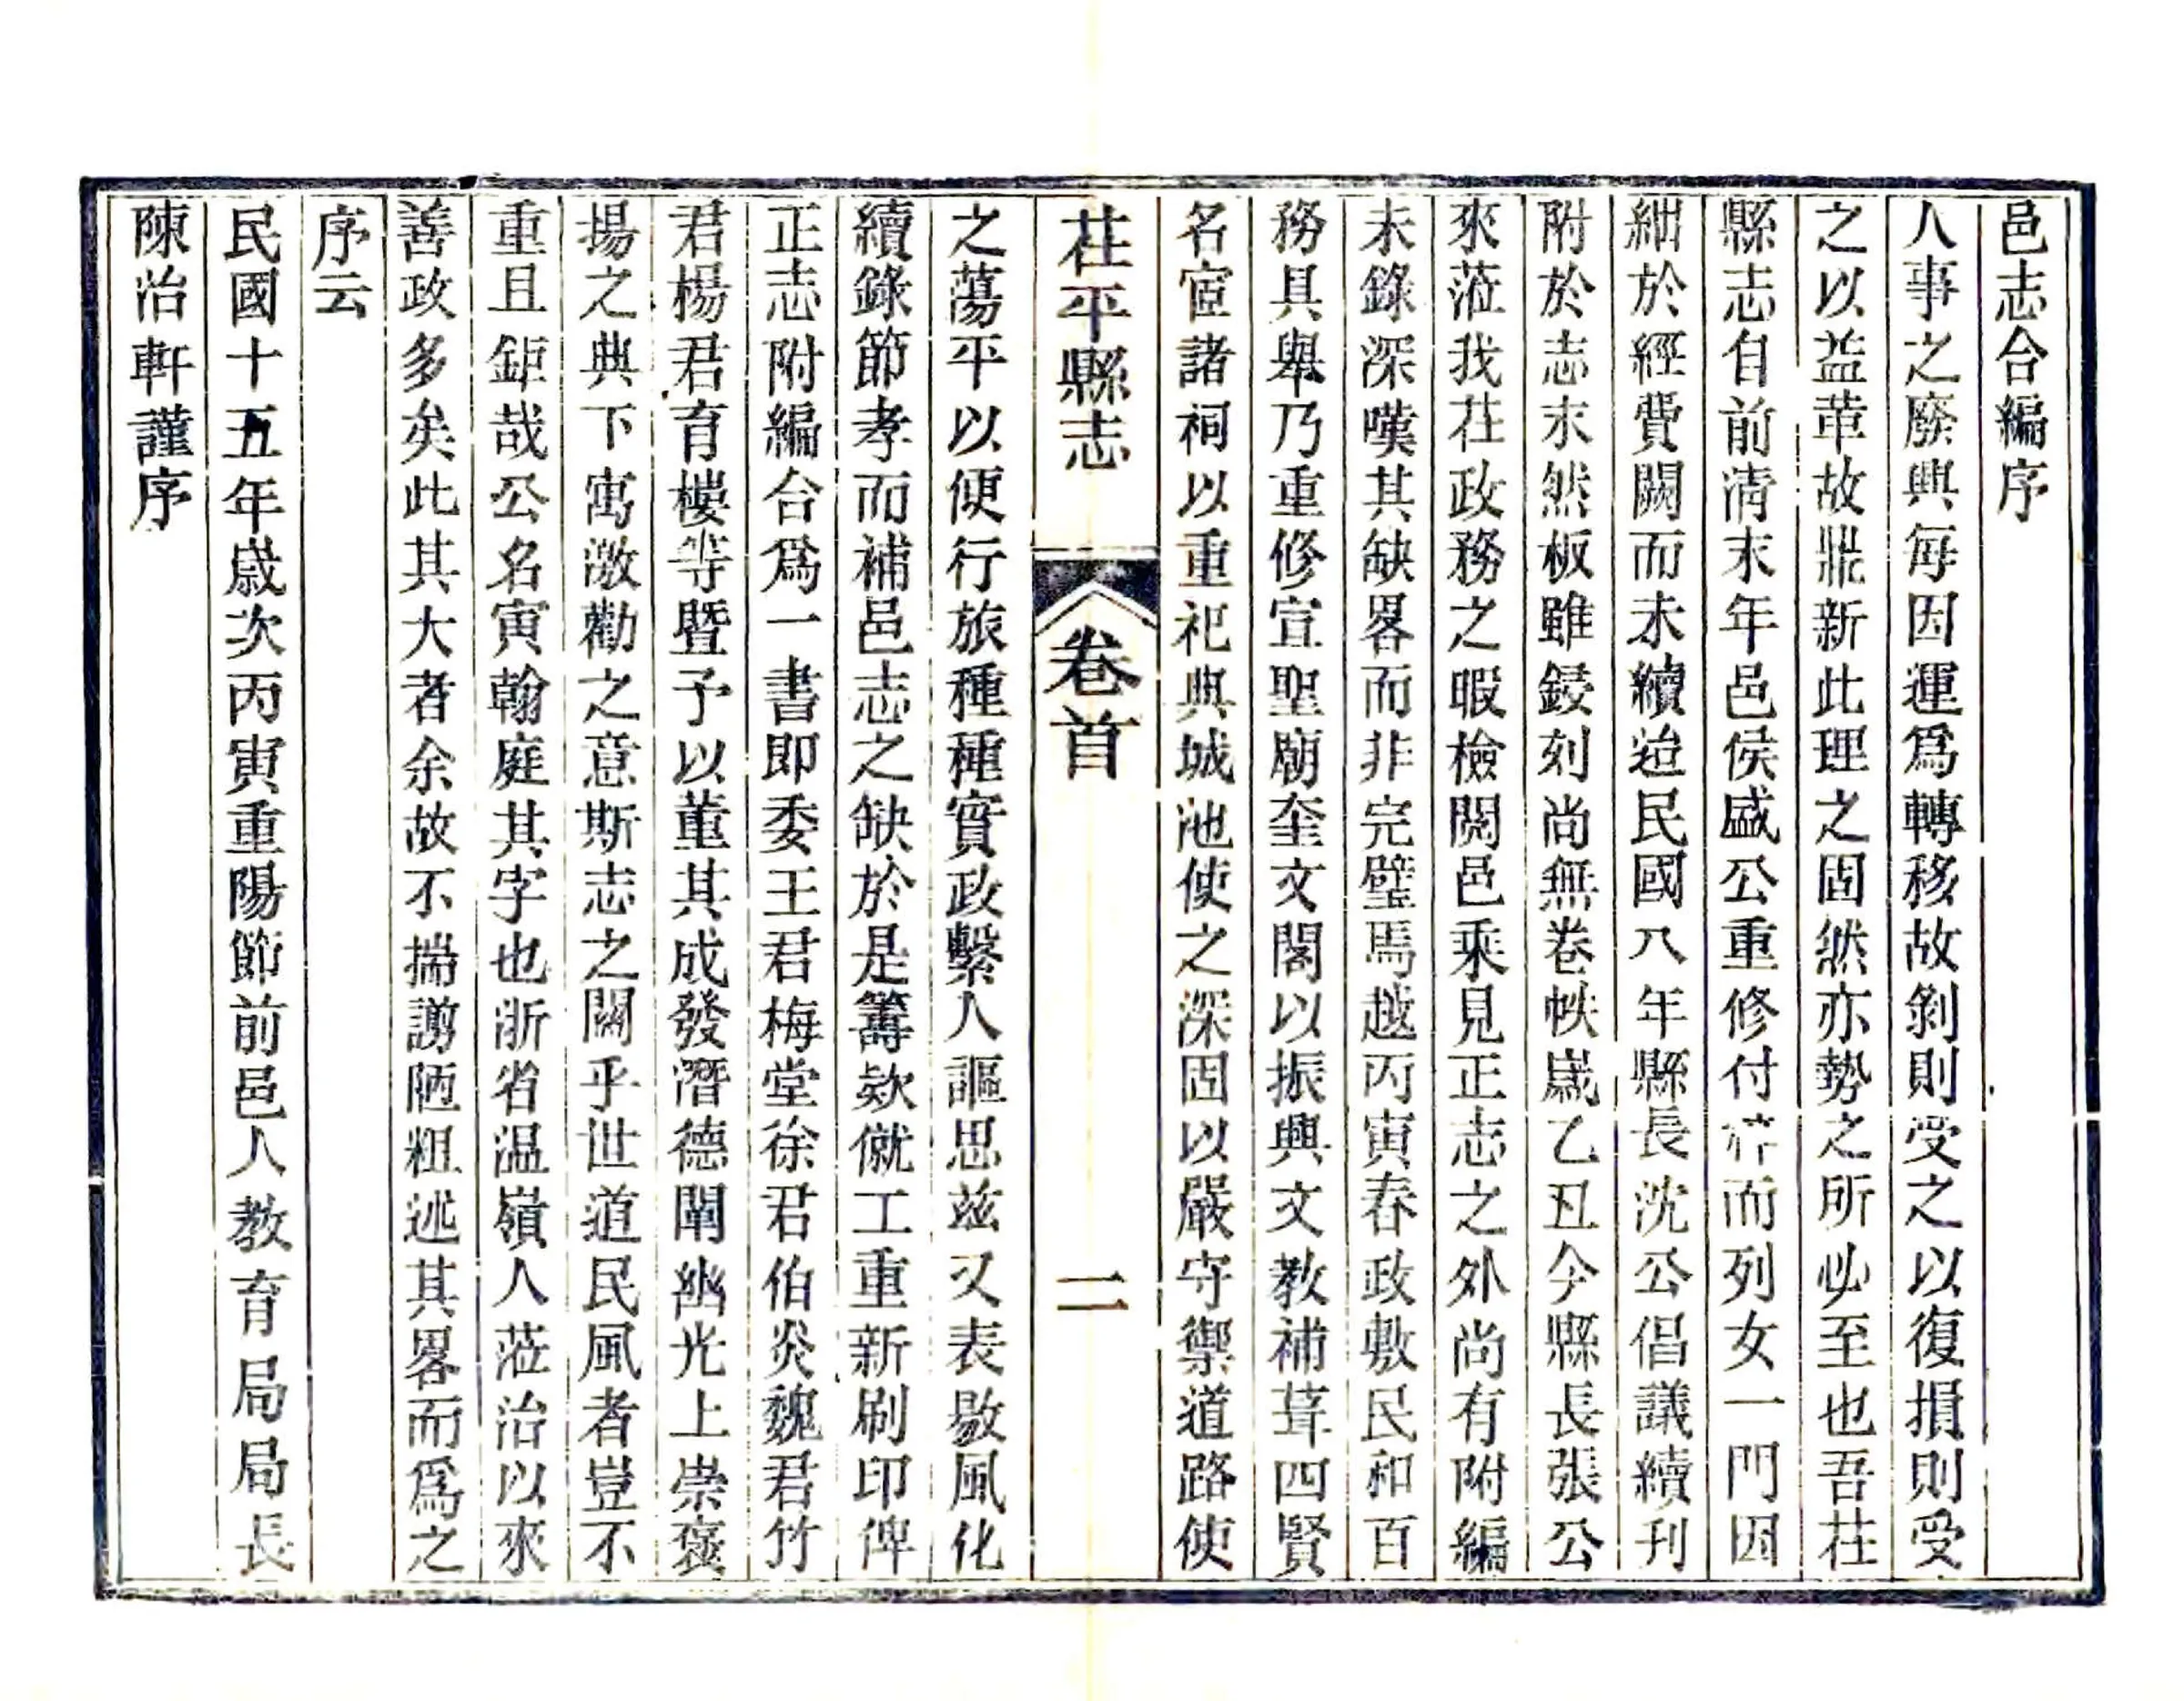 邑志合編序
人事之廢興每因運爲轉移故剝則受之以復損則受
之以益革故鼎新此理之固然亦勢之所必至也吾茌
縣志自前淸末年邑侯盛公重修付梓而列女一門因
絀於經費闕而未續迨民國八年縣長沈公倡議續刊
附於志末然板雖鋟刻尚無卷帙歲乙丑今縣長張公
來蒞我茌政務之暇檢閱邑乘見正志之外尚有附編
未錄深嘆其缺畧而非完璧焉越丙寅春政敷民和百
務具舉乃重修宣聖廟奎文閣以振興文教補葺四賢
名宦諸祠以重祀典城池使之深固以嚴守禦道路使
茌平縣志 卷首 二
之蕩平以便行旅種種實政繫人謳思茲又表敭風化
續錄節孝而補邑志之缺於是籌欵僦工重新刷印俾
正志附編合爲一書即委王君梅堂徐君伯炎魏君竹
君楊君育樓等暨予以董其成發潛德闡幽光上崇褒
揚之典下寓激勸之意斯志之關乎世道民風者豈不
重且鉅哉公名寅翰庭其字也浙省温嶺人蒞治以來
善政多矣此其大者余故不揣謭陋粗述其畧而爲之
序云
民國十五年歲次丙寅重陽節前邑人教育局局長
陳治軒謹序